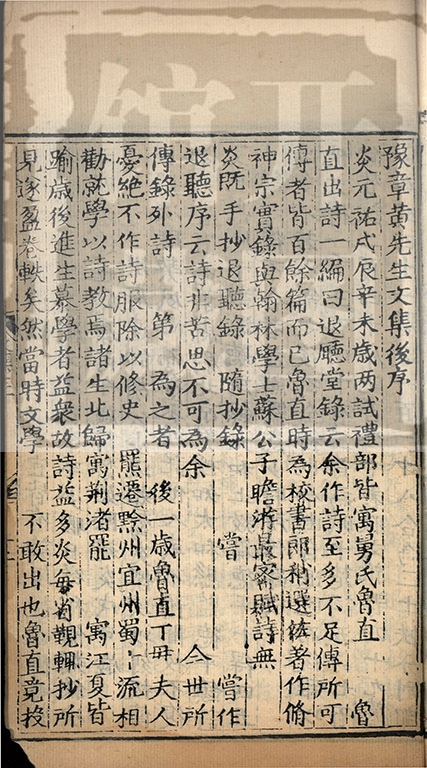 豫章黄先生文集後序
炎元祐戌辰辛未歲两試禮部皆寓舅氏魯直 魯
直出詩一編曰退廳堂錄云余作詩至多不足傳所可
傳者皆百餘篇而已魯直時為校書郎稍選 著作脩
神宗實錄與翰林學士蘇公子瞻游最密賦詩無
炎既手抄退聽錄 隨抄錄 嘗 嘗作
退聽序云詩非苦思不可為余 仐世所
傳錄外詩 第 為之者 後一歲魯直丁毋夫人
憂絶不作詩服除以修史 羆遷黔州宜州蜀士流相
勸就學以詩教焉諸生北歸寓荆渚罷 寓江夏皆
踰歲後進生慕學者益衆故詩益多炎每省觀輙抄所
見遂盈卷軼矣然當時文學 不敢出也魯直竟投